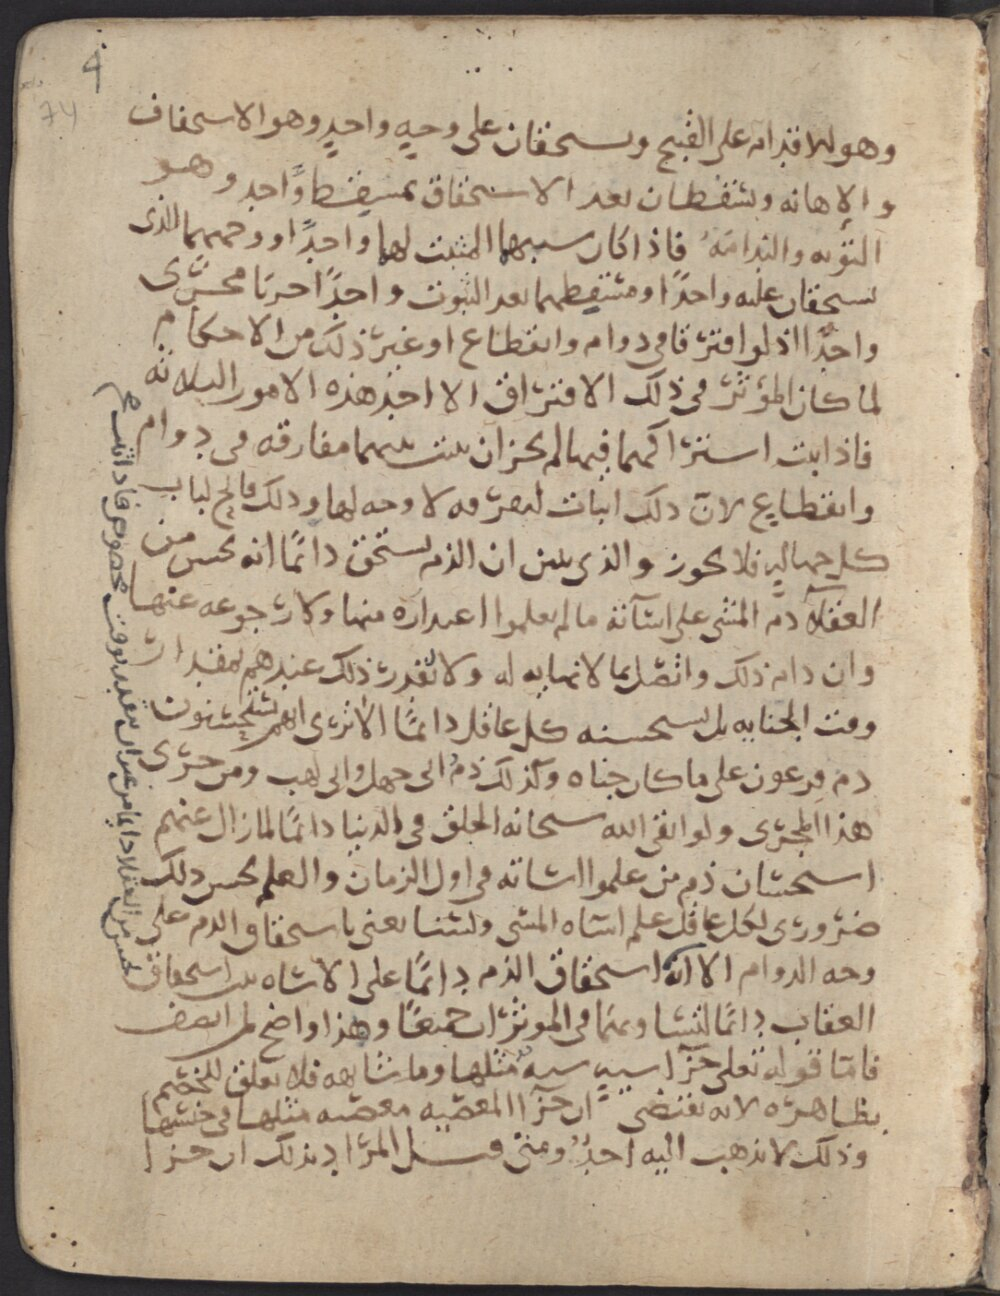 4
74
وهو للاقدام على القبيح ويستحقان على وجهٍ واحدٍ وهو الاستخفاف
والإهانه ويسقطان بعد الاستحقاق بمسقطٍ واحد وهو
التوبه والندامه فاذا كان سببهما المثبت لهما واحدًا ووجههما الذى
يستحقان عليه واحدًا ومسقطهما بعد الثبوت واحدًا جريا مجرًى
واحدًا اذ لو افترقا فى دوام وانقطاع او غير ذلك من الاحكام
لما كان المؤثر فى ذلك الافتراق الا احد هذه الامور الثلاثه
فاذا ثبت اشتراكهما فيها لم يجز ان يثبت بينهما مفارقه فى دوام
وانقطاع لان ذلك اثبات لتفرقه لا وجه لها وذلك فاتح لباب
كل جهاله فلا يجوز والذى يبين ان الذم يستحق دائمًا انه يحسن من
العقلآء ذم المسئ على اسآئته ما لم يعلموا اعتذاره منها ولا رجوعه عنها
وان دام ذلك واتصل بما لا نهايه له ولا تقدر ذلك عندهم بمقدار
وقت الجنايه بل يستحسنه كل عاقل دائمًا الا ترى انهم يستحسنون
ذم فرعون على ما كان جناه وكذلك ذم ابى جهل وابى لهب ومن جرى
هذا المجرى ولو ابقى الله سبحانه الخلق فى الدنيا دائمًا لما زال عنهم
استحسان ذم من علموا اساته فى اول الزمان والعلم بحسن ذلك
ضرورى لكل عاقل علم اسآه المسئ ولسنا نعنى باستحقاق الذم على
وجه الدوام الا انه استحقاق الذم دائمًا على الاساه يثبت استحقاق
العقاب دائمًا لتساويهما فى المؤثرات جميعًا وهذا واضح لمن انصف
فامّا قوله تعلى جزآ سيئه سيئه مثلها وما شابهه فلا تعلق للخصم
بظاهره لانه يقتضى ان جزآ المعصيه معصيه مثلها فى جنسها
وذلك لا يذهب اليه احدٌ ومتى قيل المراد بذلك ان جزا
يحسن من العقلا دائما من غير ان يتقدر بوقت مخصوص فاذا